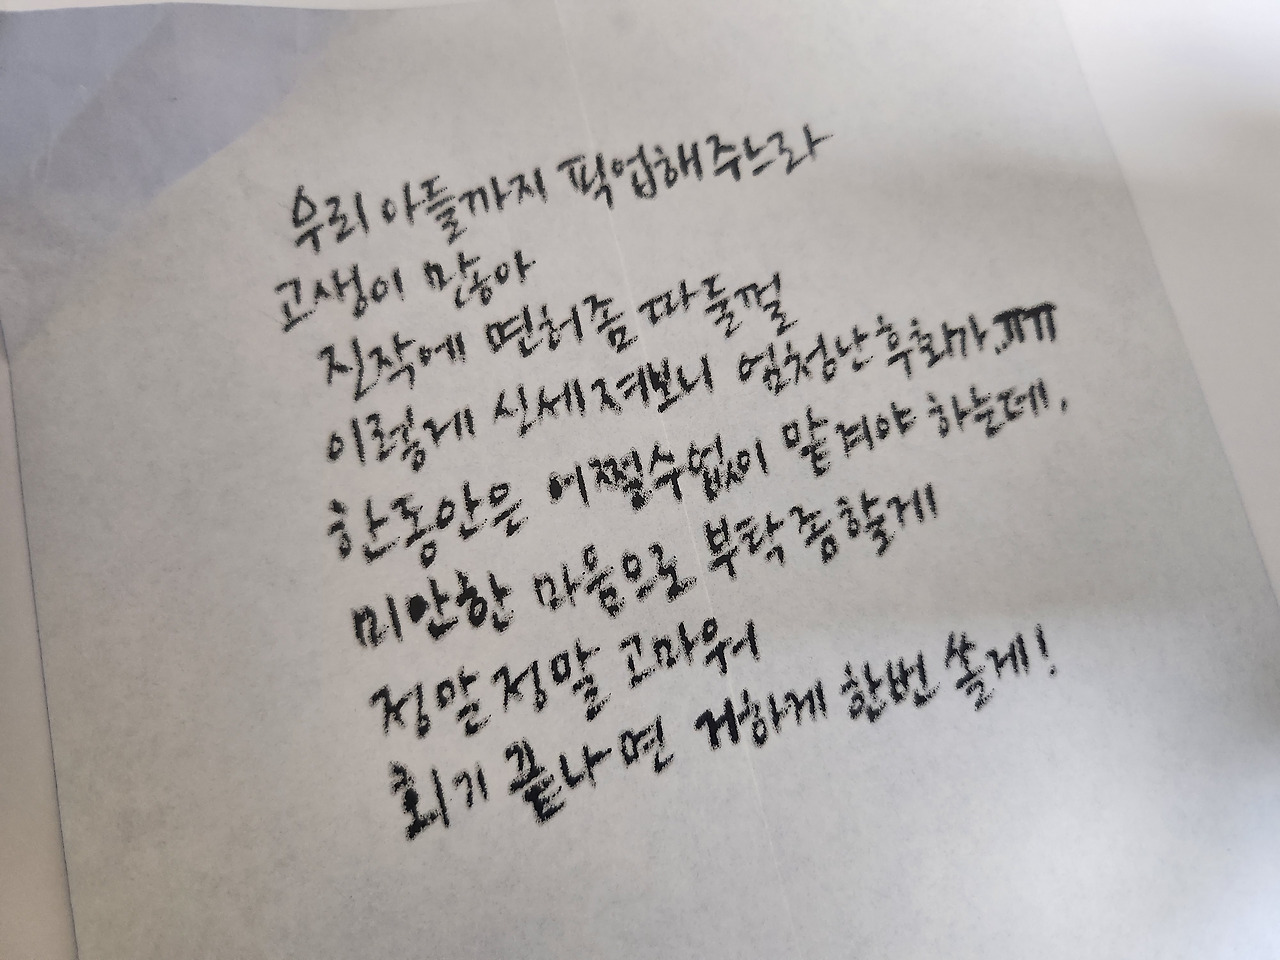 우리 아들까지 픽업해주느라
고생이 많아
진작에 면허좀 따둘껄
이렇게 신세져보니 엄청난 후회가..ㅠㅠ
한동안은 어쩔수없이 맡겨야 하는데,
미안한 마음으로 부탁 좀할게
정말 정말 고마워
회기 끝나면 거하게 한번 쏠게!